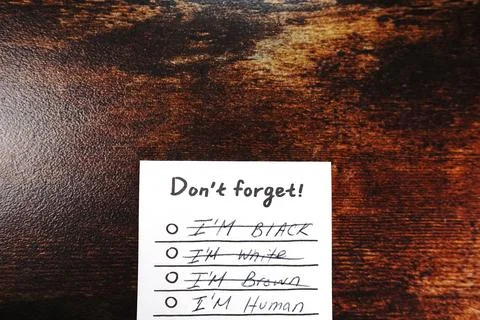 Don't forget!
I'M BLACK
I'M White
I'M Brown
I'M Human